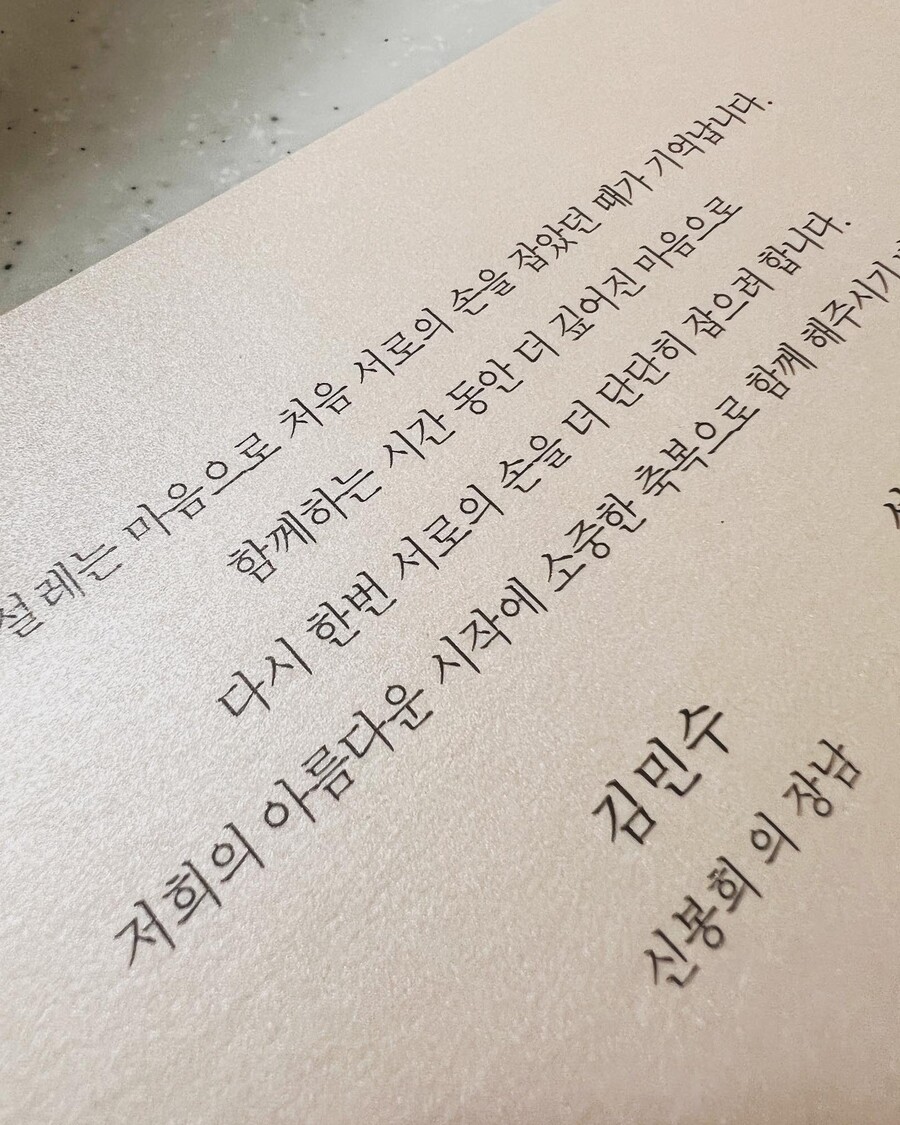 설레는 마음으로 처음 서로의 손을 잡았던 때가 기억납니다.
함께하는 시간 동안 더 깊어진 마음으로
다시 한번 서로의 손을 더 단단히 잡으려 합니다.
저희의 아름다운 시작에 소중한 축복으로 함께 해주시기
김민수
신봉희 의 장남